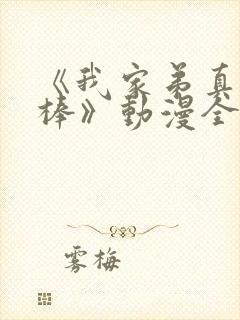 《我家弟真
棒》動漫全
雾梅